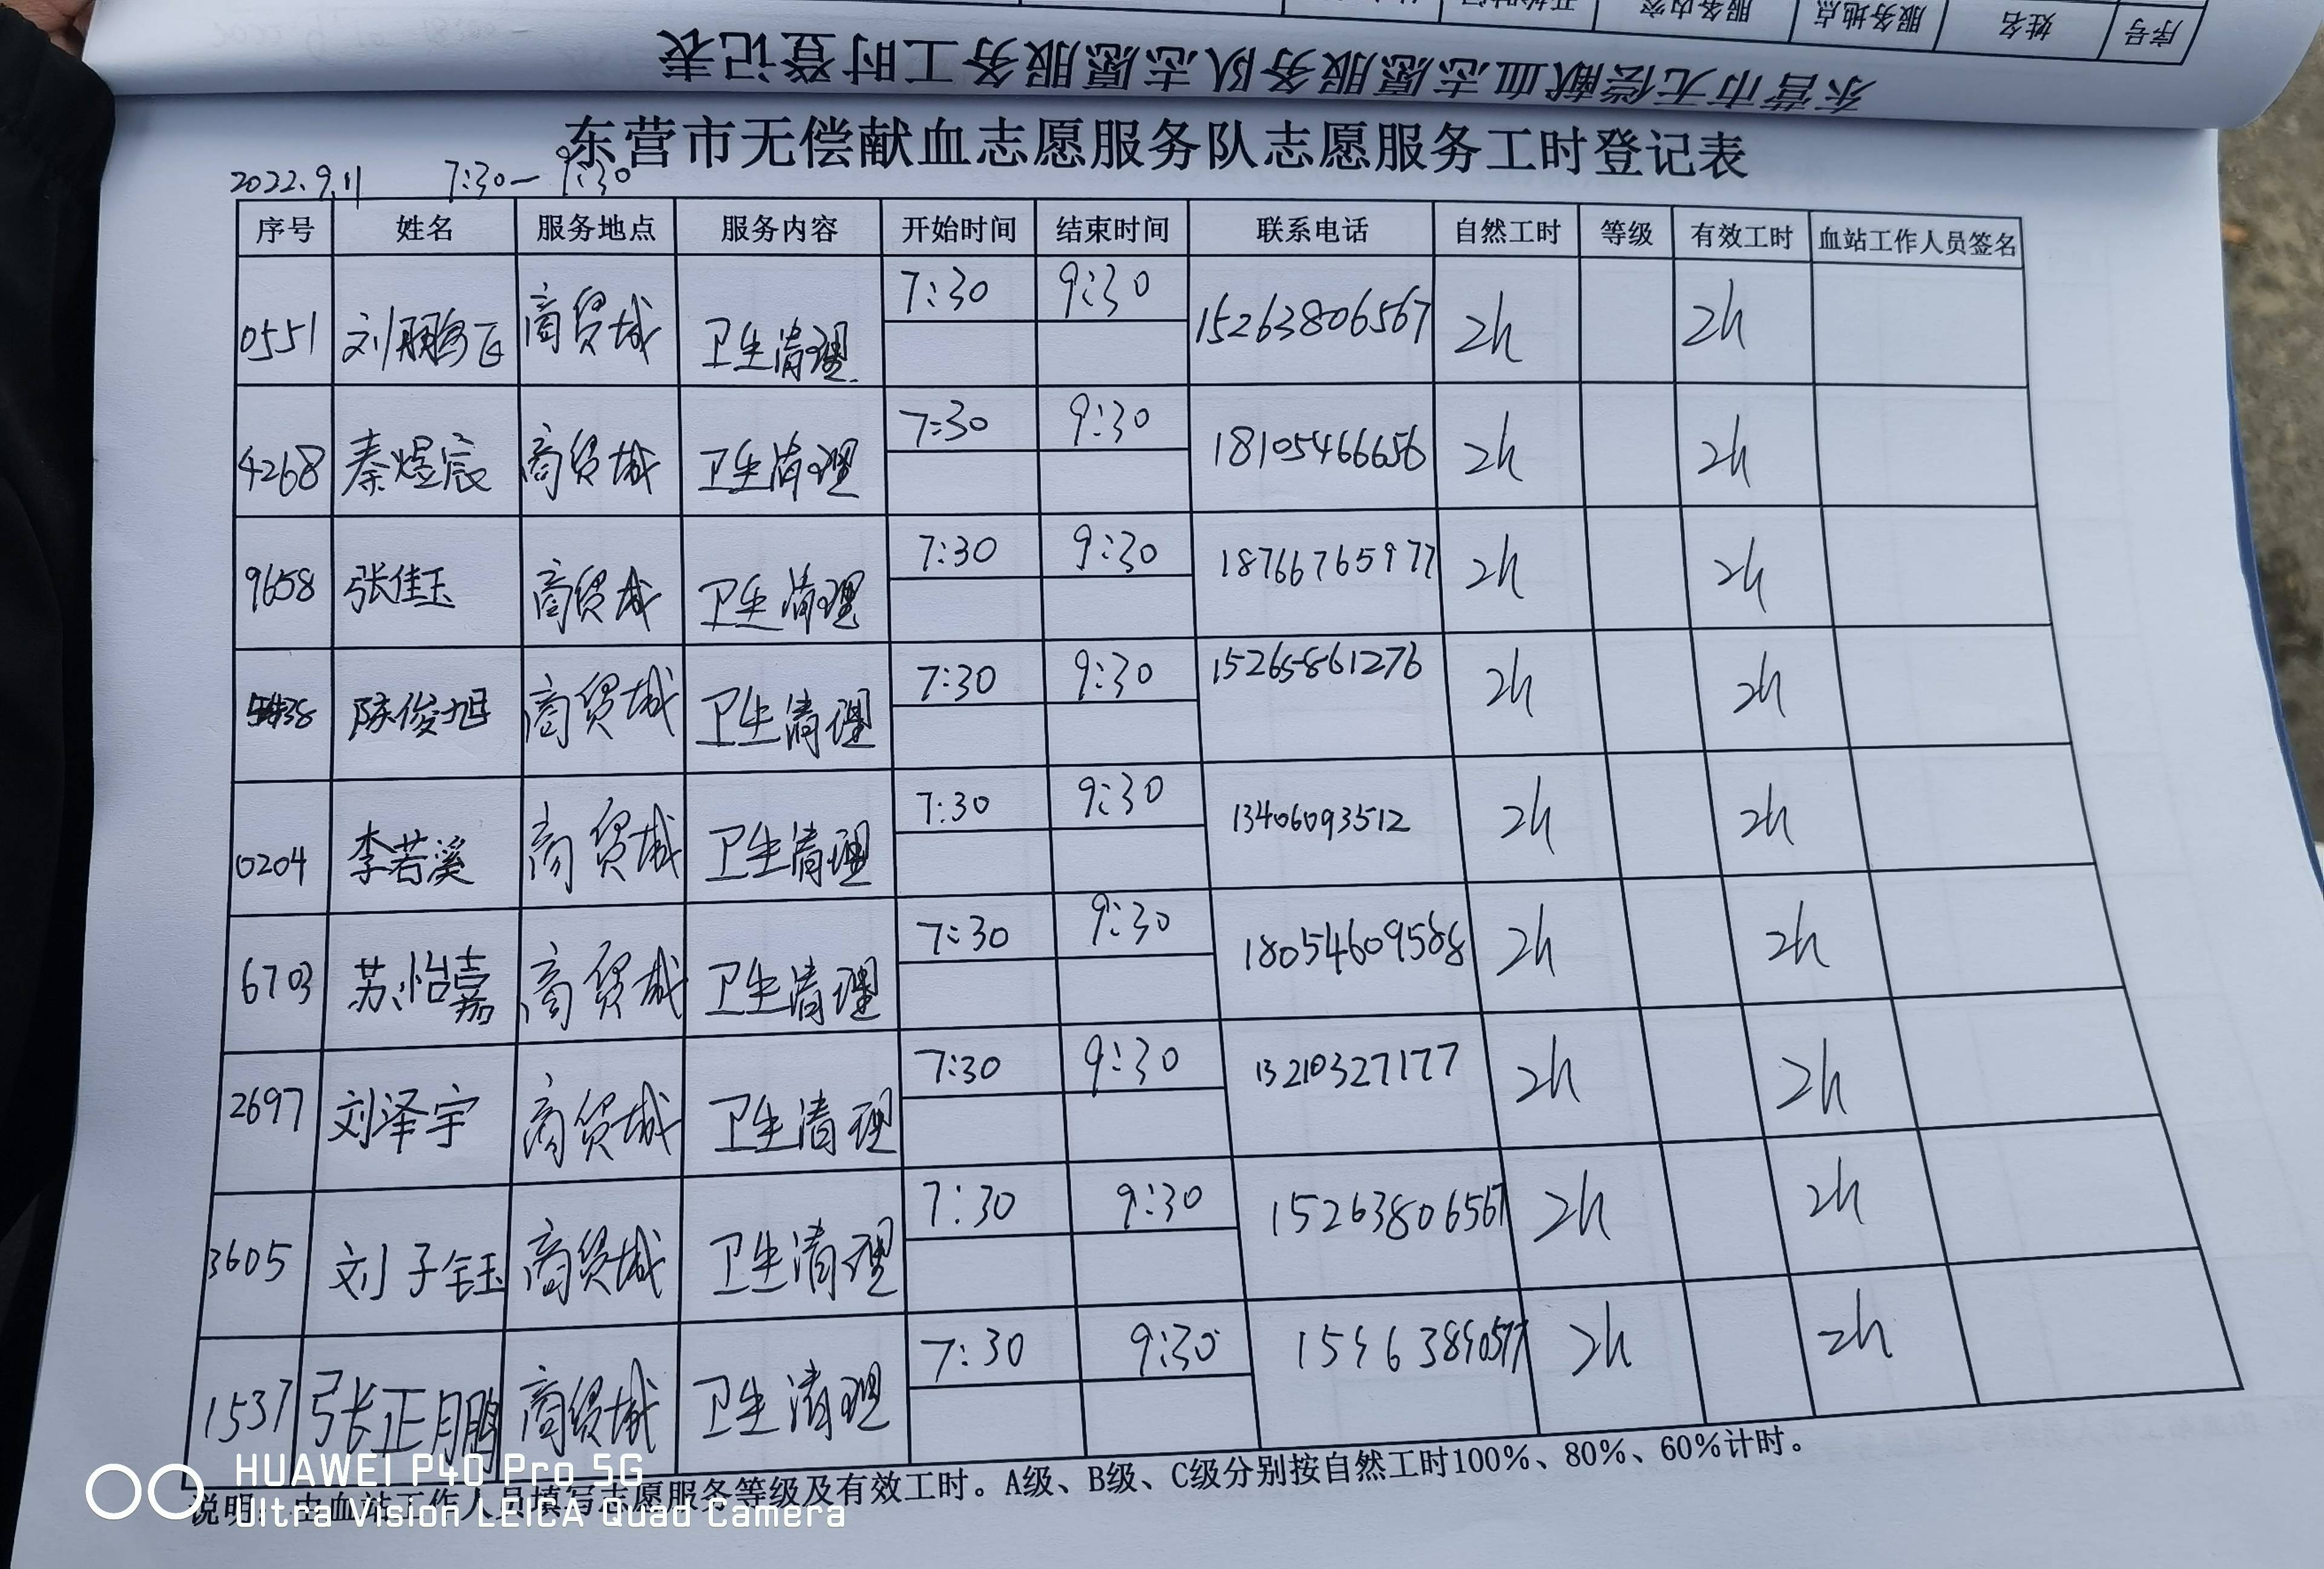 序号 姓名 服务地点 服务内容
东营市无偿献血志愿服务队志愿服务工时登记表
东营市无偿献血志愿服务队志愿服务工时登记表
2022.9.11 7:30—9:30
序号 姓名 服务地点 服务内容 开始时间 结束时间 联系电话 自然工时 等级 有效工时 血站工作人员签名
0551 刘鹏飞 商贸城 卫生清理 7:30 9:30 15263806567 2h 2h
4268 秦煜宸 商贸城 卫生清理 7:30 9:30 18105466656 2h 2h
9658 张佳玉 商贸城 卫生清理 7:30 9:30 18766765977 2h 2h
陈俊旭 商贸城 卫生清理 7:30 9:30 15265861276 2h 2h
0204 李若溪 商贸城 卫生清理 7:30 9:30 13406093512 2h 2h
6703 苏怡嘉 商贸城 卫生清理 7:30 9:30 18054609588 2h 2h
2697 刘泽宇 商贸城 卫生清理 7:30 9:30 13210327177 2h 2h
3605 刘子钰 商贸城 卫生清理 7:30 9:30 15263806567 2h 2h
1537 张正鹏 商贸城 卫生清理 7:30 9:30 2h 2h
说明：由血站工作人员填写志愿服务等级及有效工时。A级、B级、C级分别按自然工时100%、80%、60%计时。
HUAWEI P40 Pro 5G
Ultra Vision LEICA Quad Camera